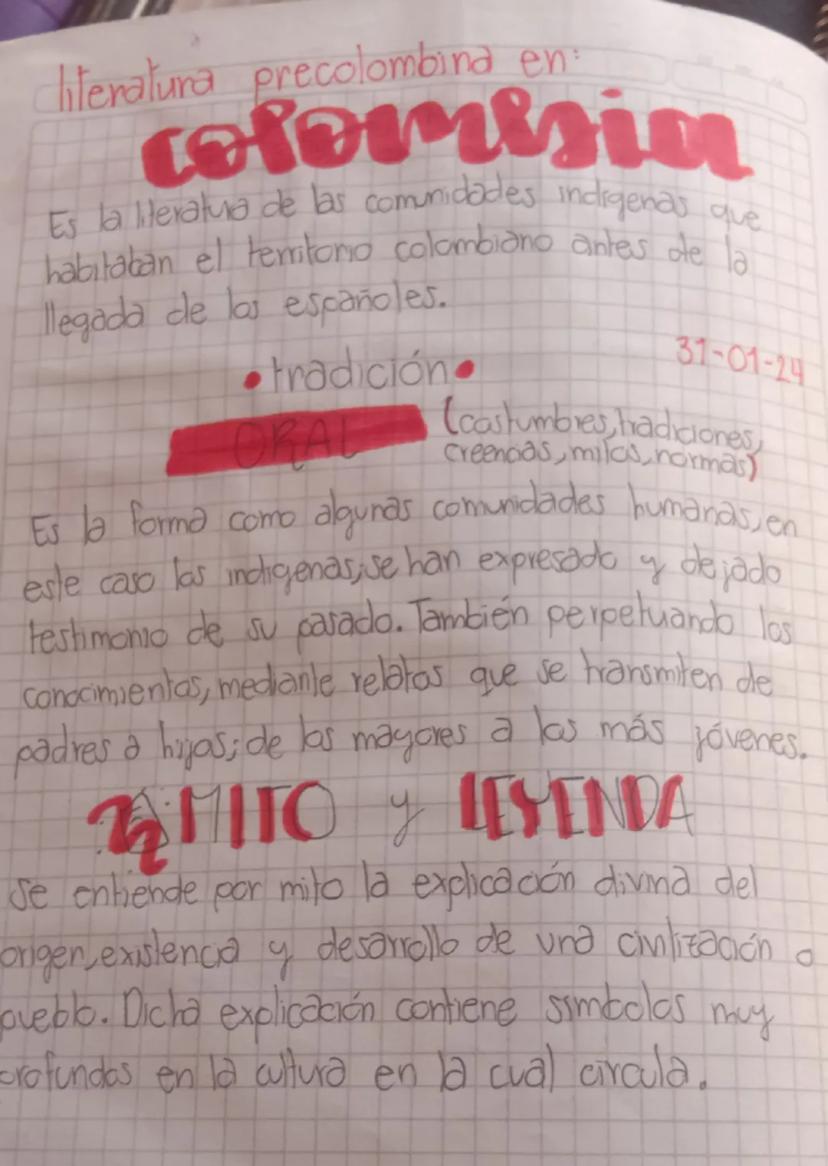 literatura precolombina en:
colombia
Es la literatura de las comunidades indigenas que
habitaban el territorio colombiano antes de la
llegada de los españoles.
31-01-24
•tradición•
ORAL (costumbres, tradiciones,
creencias, mitos, normas)
Es la forma como algunas comunidades humanas, en
este caso los indigenas, se han expresado y dejado
testimonio de su pasado. También perpetuando los
conocimientos, mediante relatos que se transmiten de
padres a hijos; de los mayores a los más jóvenes.
MITO y LEYENDA
Se entiende por mito la explicación divina del
origen, existencia y desarrollo de una civilización o
pueblo. Dicha explicación contiene simbolos muy
profundos en la cultura en la cual circula.